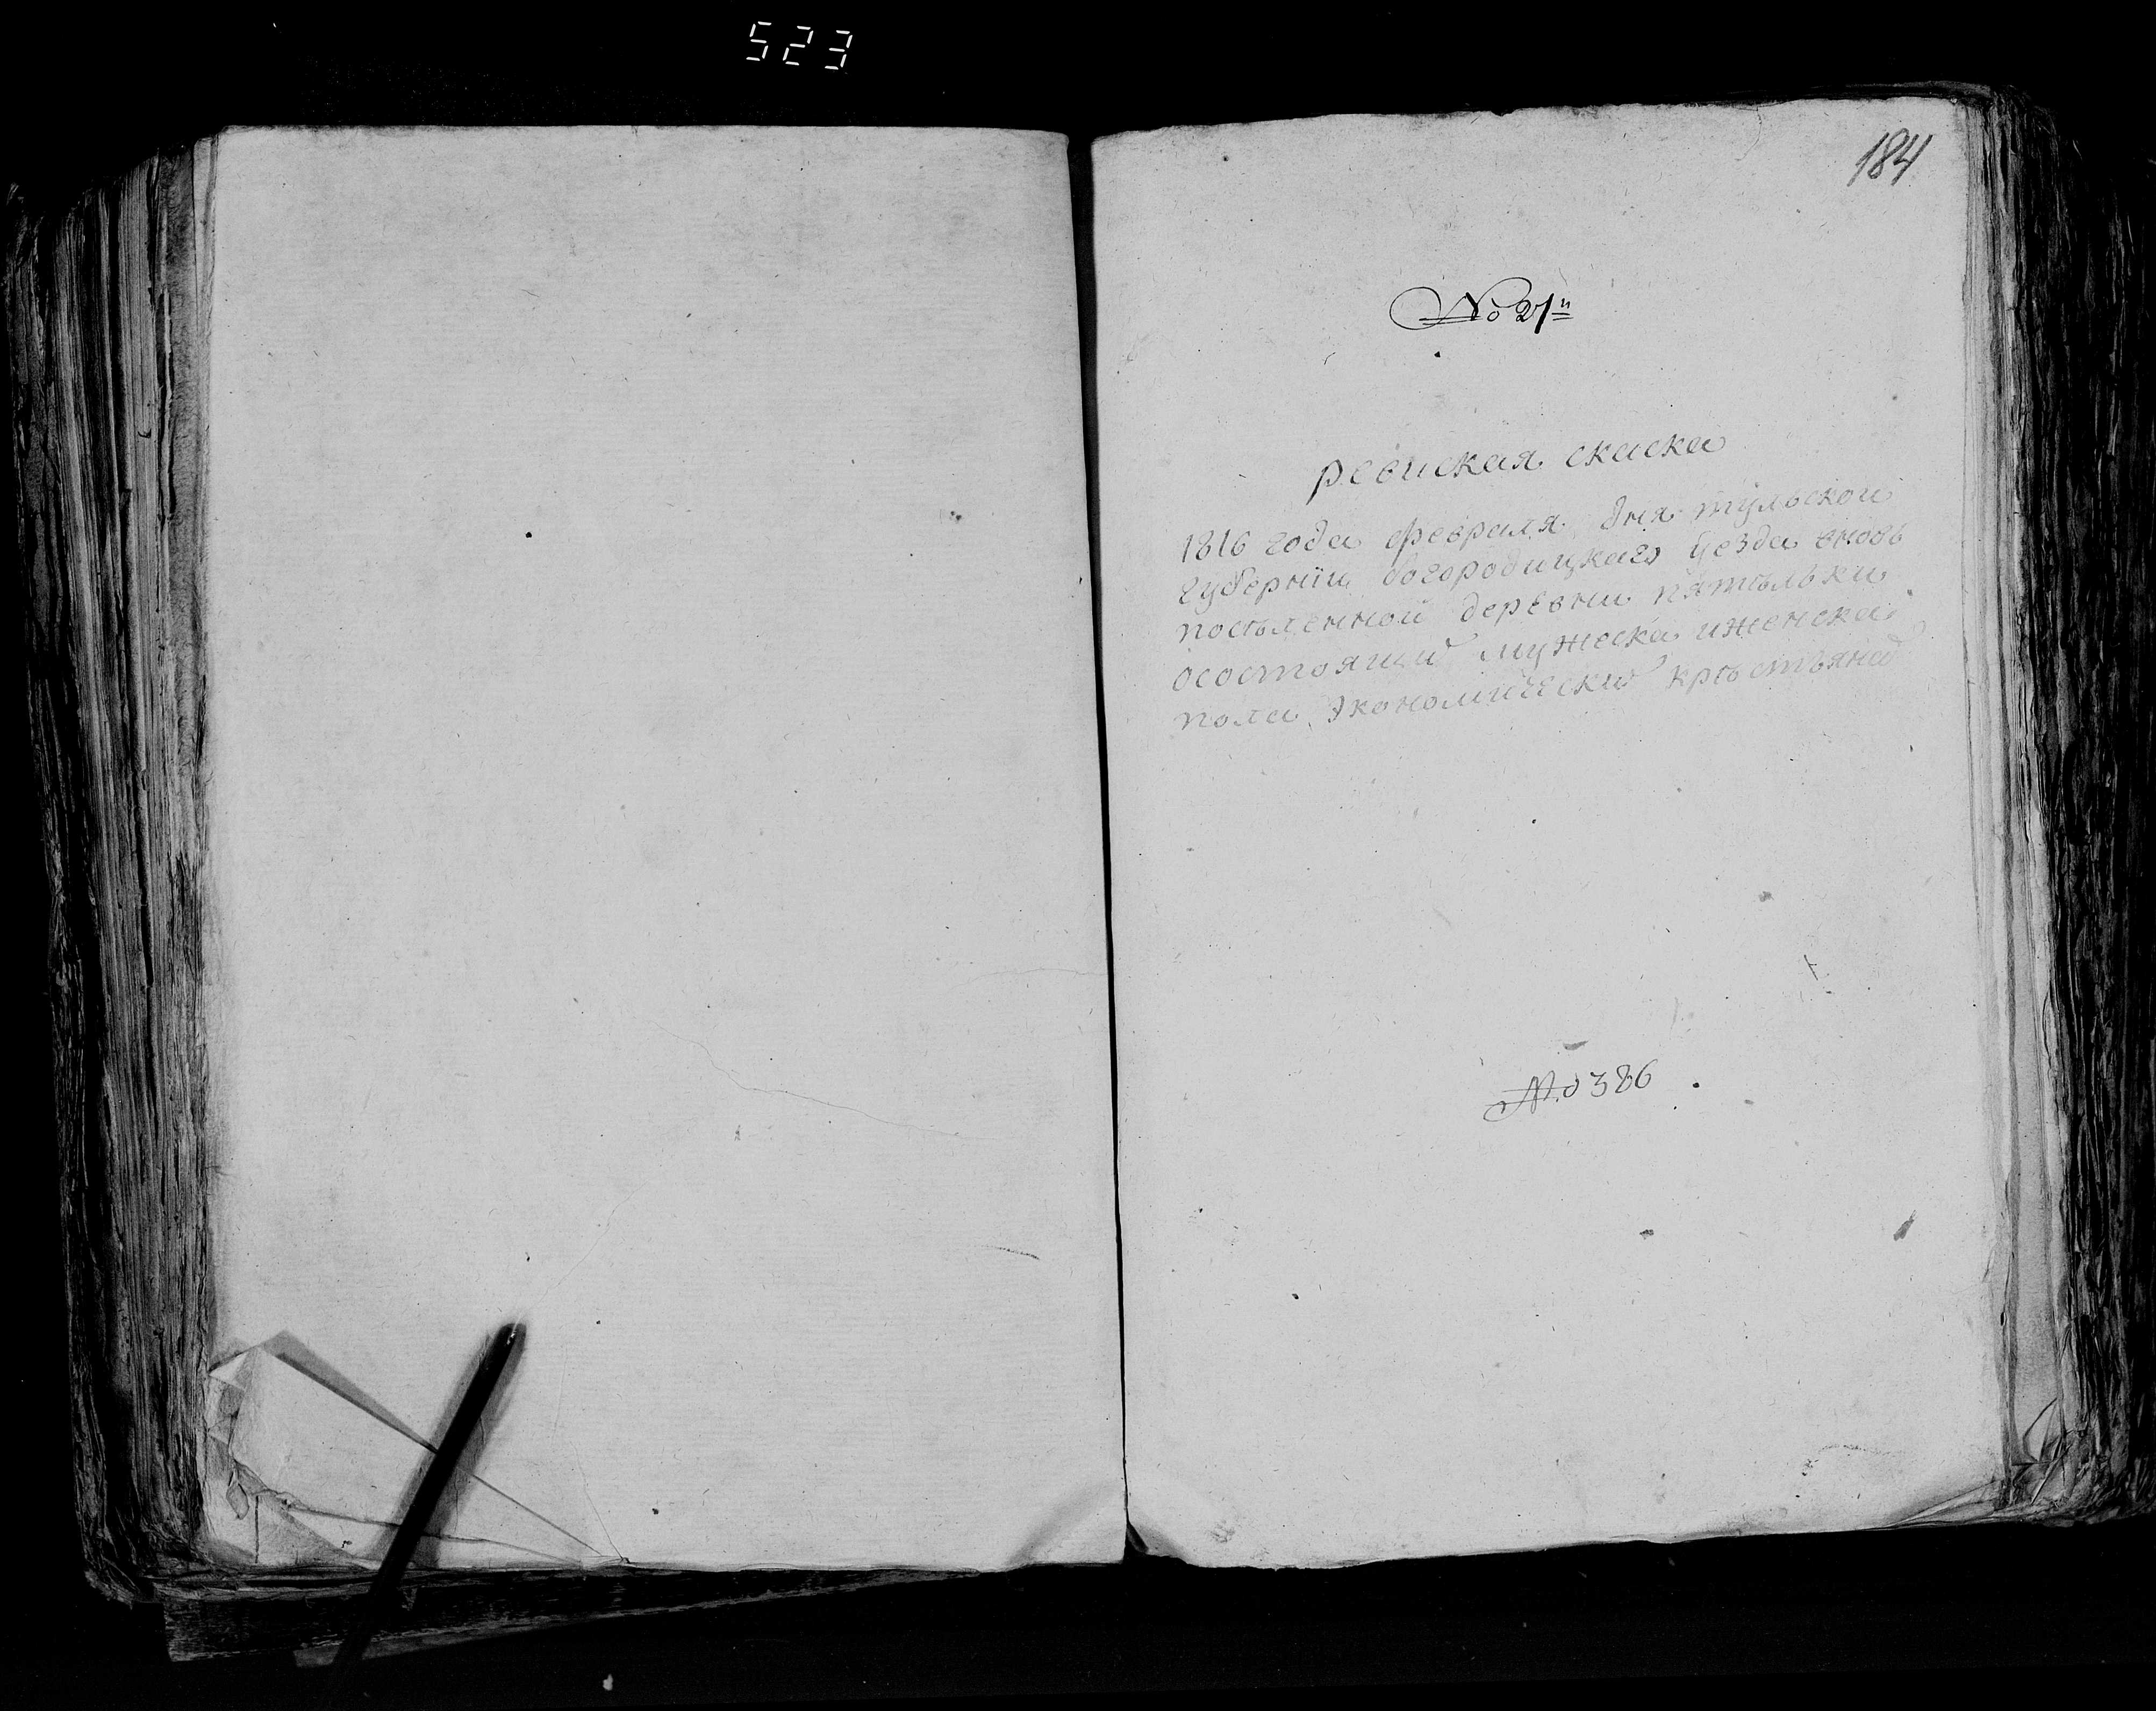 523
184
№ 27й
ревиская скаска
1816 года февраля дня тульской
губернїи богородицкаго уезда вновь
посѣленной деревни пятѣльки
осостоящих мужеска иженска
пола Экономических крѣстьянах
№ 386